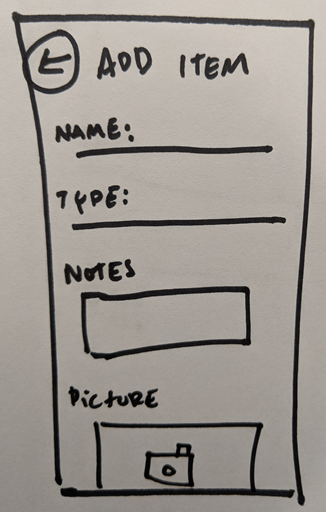 ADD ITEM
NAME:
TYPE:
NOTES
PICTURE